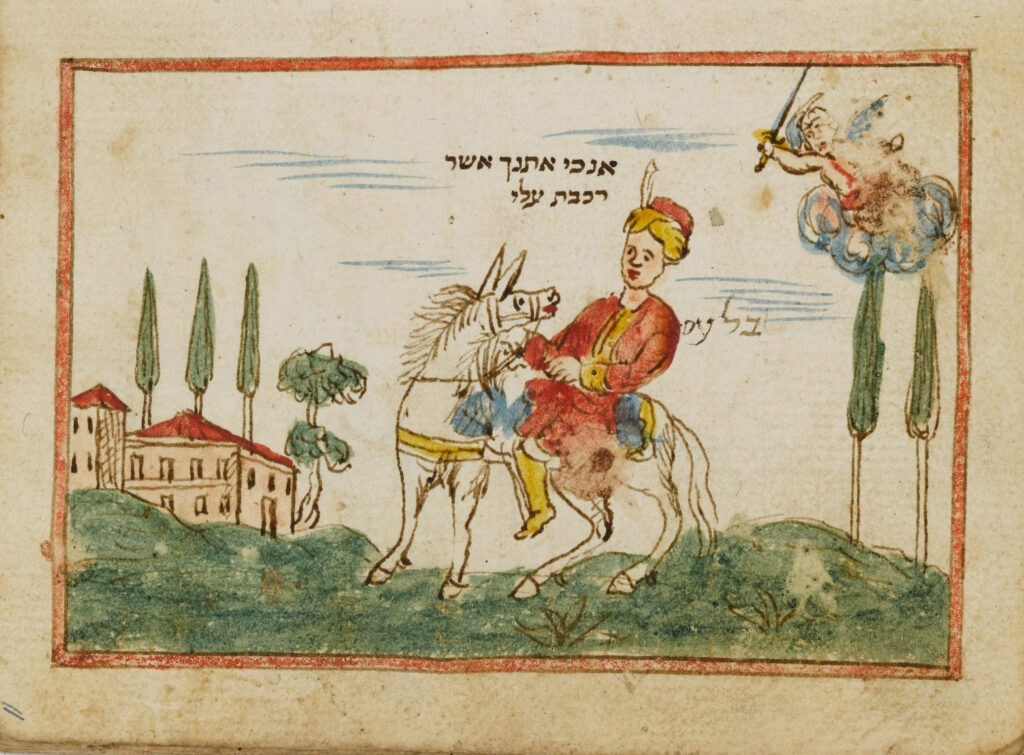 אנכי אתנך אשר
רכבת עלי
בלעם